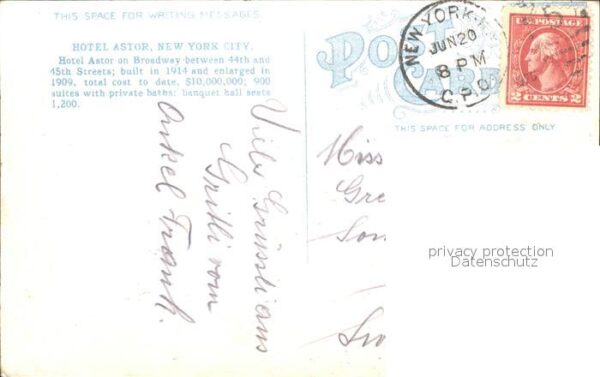 THIS SPACE FOR WRITING MESSAGES
HOTEL ASTOR, NEW YORK CITY.
Hotel Astor on Broadway between 44th and
45th Streets; built in 1914 and enlarged in
1909, total cost to date, $10,000,000; 900
suites with private baths; banquet hall seats
1,200.
Viele Grüssli aus
Gritli vom
Onkel Frank.
POST CARD
NEW YORK, N.Y.
JUN 20
8 PM
G.P.O.
U.S. POSTAGE
2 CENTS 2
THIS SPACE FOR ADDRESS ONLY
Miss
Gre
Son
privacy protection
Datenschutz